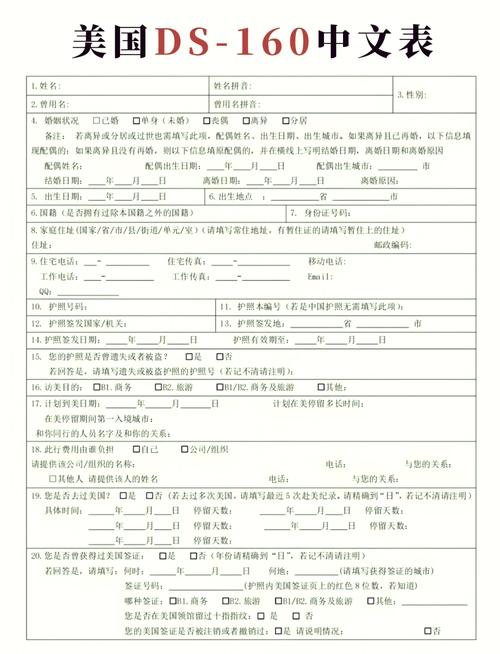 美国DS-160中文表
1.姓名: 姓名拼音: 3.性别:
2.曾用名: 曾用名拼音:
4. 婚姻状况 □已婚 □单身（未婚） □丧偶 □离异 □分居
备注: 若离异或分居或过世也需填写此项，配偶姓名、出生日期、出生城市。如果离异且已再婚，以下信息填
现配偶的；如果离异且没有再婚，则以下信息填原配偶的，并在横线上写明结婚日期，离婚日期和离婚原因
配偶姓名: 配偶出生日期:____年____月____日 配偶出生城市:________ 市
结婚日期:____年____月____日 离婚日期:____年____月____日 离婚原因:
5. 出生日期:____年____月____日 6.出生地点 :________省________市
6.国籍（是否拥有过除本国籍之外的国籍） 7. 身份证号码:
8.家庭住址(国家/省/市/县/街道/单元/室)（请填写常住地址，有暂住证的请填写暂住上的住址）
住址: 邮政编码:
9.住宅电话:___-________ 住宅传真:____-________ 移动电话:
工作电话:____-________ 工作传真:____-________ Email:
QQ:____________
10. 护照号码: 11. 护照本编号（若是中国护照无需填写此项）:
12. 护照签发国家/机关: 13. 护照签发地:____________省________市
14.护照签发日期:____年____月____日 护照有效期至:____年____月____日
15. 您的护照是否曾遗失或者被盗？ □是 □否
若回答是，请填写遗失或被盗护照的护照号（若记不清请注明）:
16.访美目的: □B1.商务 □B2.旅游 □B1/B2.商务及旅游 □其他:
17.计划到美日期:________年______月______日 计划在美停留多长时间:
在美停留期间第一入境城市:
和你同行的人员名字及和你的关系:
18.此行费用由谁负担 □自己 □公司/组织
请提供该公司/组织的名称: 电话: 与您的关系:
□其他人 请提供该人的姓名 电话: 与您的关系:
19.您是否去过美国？□是 □否（若去过多次美国，请填写最近5次赴美纪录。请精确到“日”，若记不清请注明）
具体时间:______年____月____日 停留天数: ______年____月____日 停留天数:
______年____月____日 停留天数: ______年____月____日 停留天数:
______年____月____日 停留天数:
20.您是否曾获得过美国签证: □是 □否（年份请精确到“日”，若记不清请注明）
若回答是，请填写: 何时:______年____月____日 何地:________(请填写获得签证的城市)
签证号码:____________(护照内美国签证页上的红色8位数，若知道)
哪种签证: □B1.商务 □B2.旅游 □B1/B2.商务及旅游 □其他:____________
您是否在美国领馆留过十指指纹: □是 □否
您的美国签证是否被注销或者撤销过: □是 请说明情况: □否